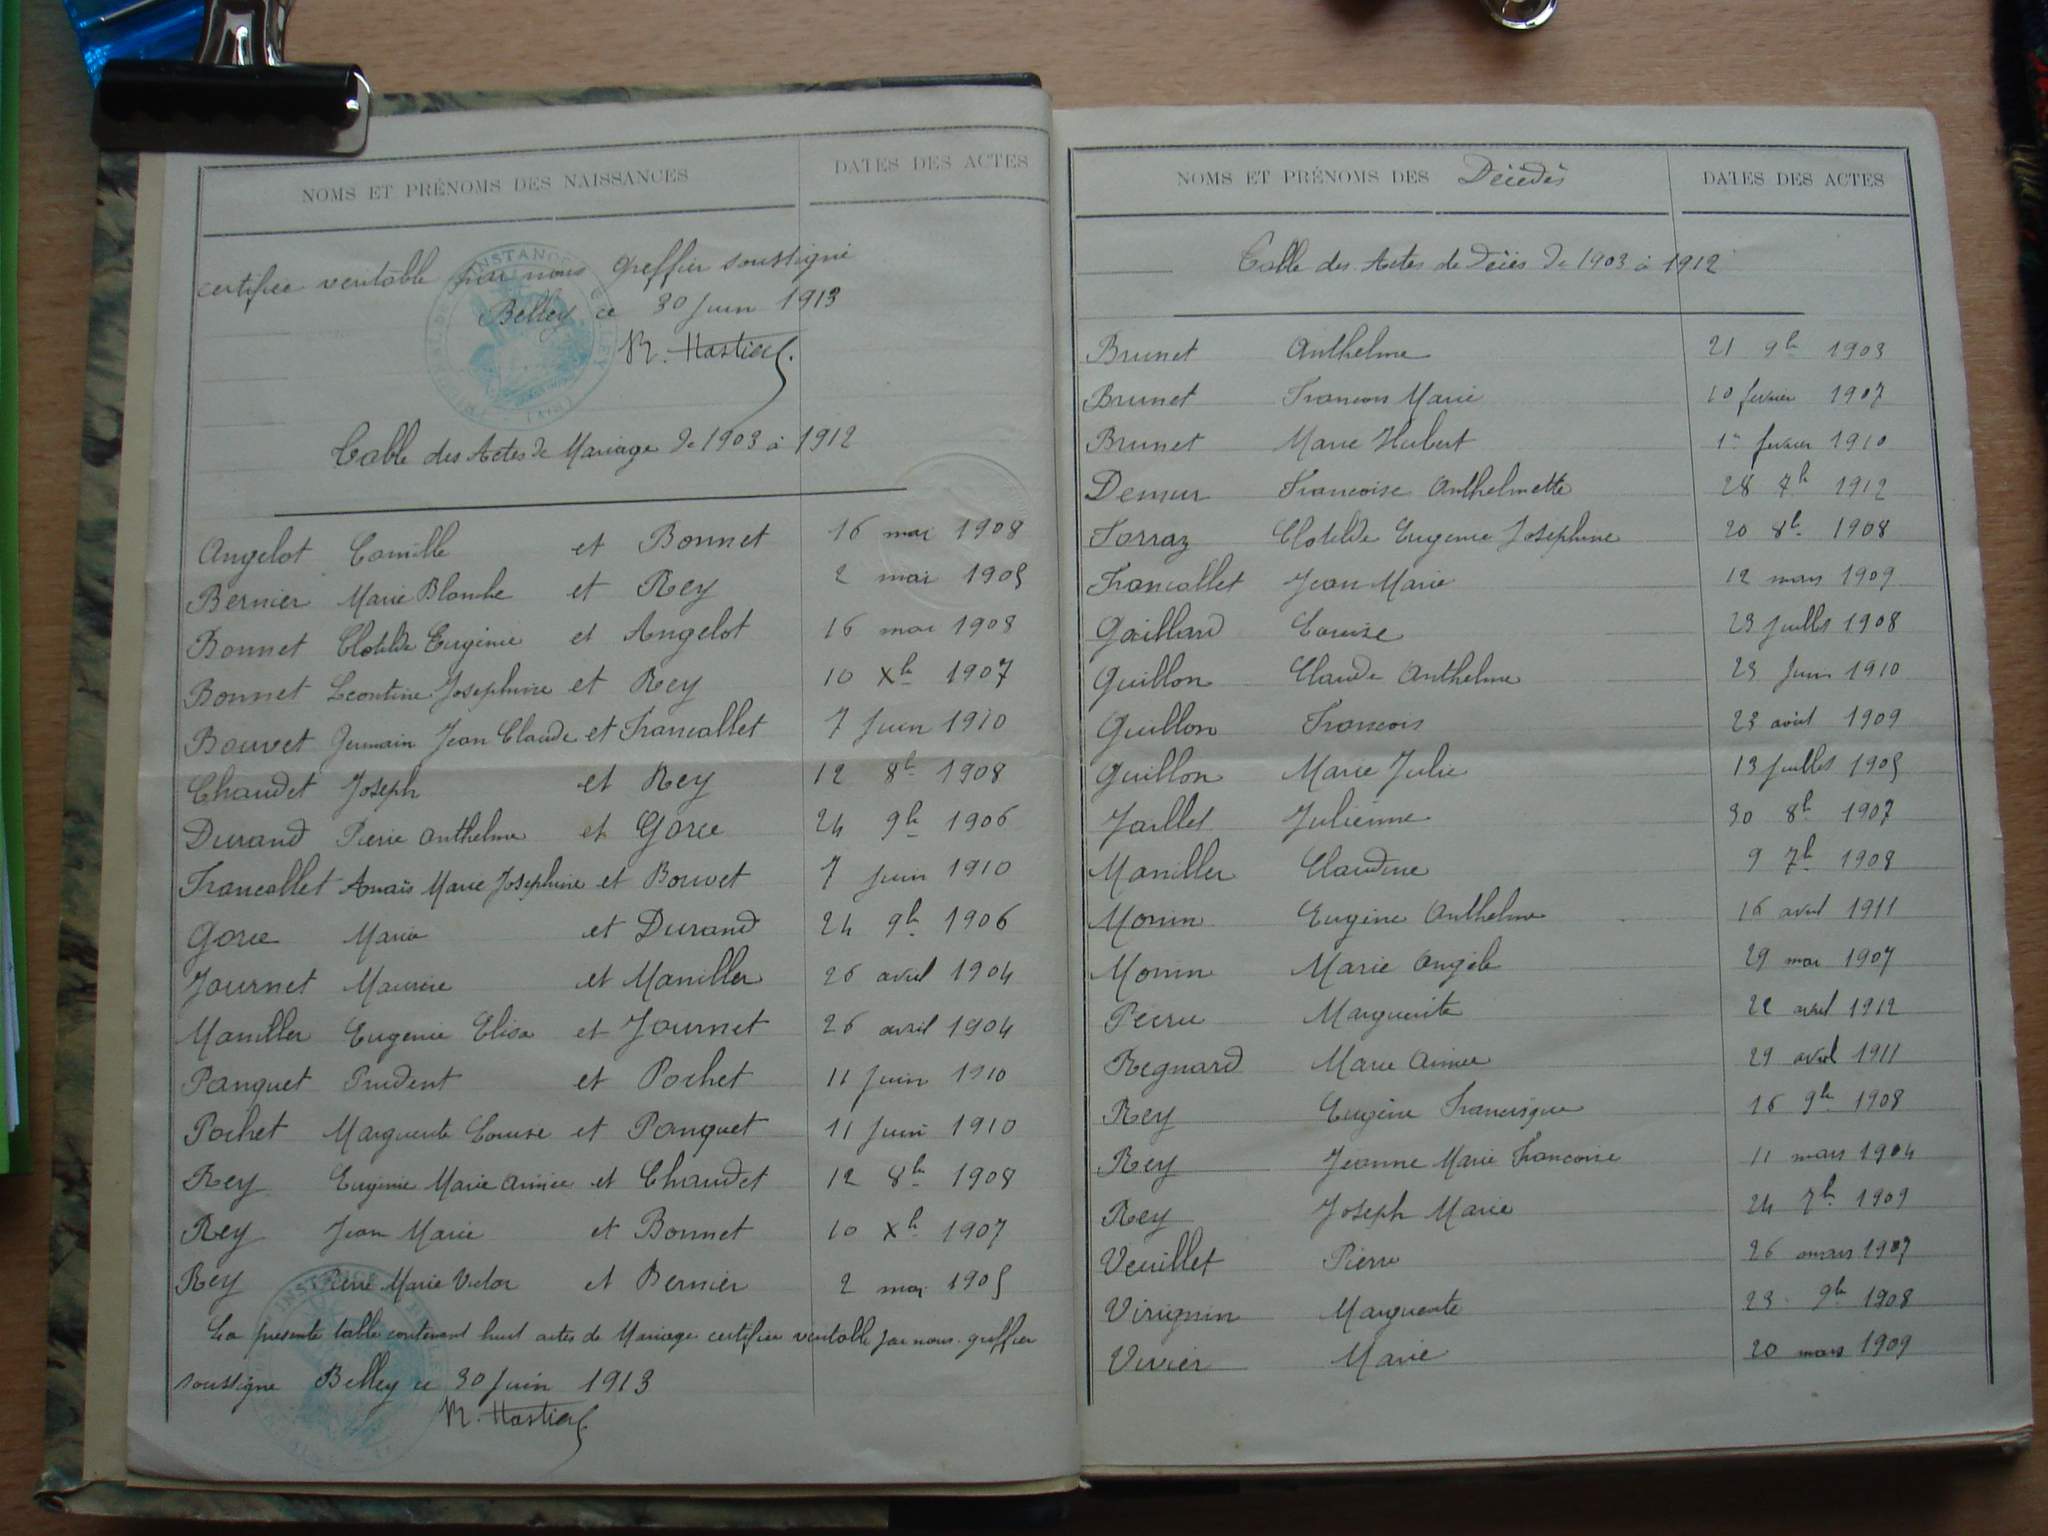 NOMS ET PRÉNOMS DES NAISSANCES DATES DES ACTES
certifiee veritable par nous greffier soussigné
Belley ce 30 Juin 1913
Table des Actes de Mariage de 1903 à 1912
Angelot Camille et Bonnet 16 mai 1908
Bernier Marie Blanche et Rey 2 mai 1905
Bonnet Clotilde Eugénie et Angelot 16 mai 1908
Bonnet Leontine Josephine et Rey 10 Xbre 1907
Bouvet Germain Jean Claude et Francallet 7 Juin 1910
Chaudet Joseph et Rey 12 8bre 1908
Durand Pierre Anthelme et Goree 24 9bre 1906
Francallet Anaïs Marie Josephine et Bouvet 7 Juin 1910
Goree Maria et Durand 24 9bre 1906
Journet Maurice et Maniller 26 avril 1904
Maniller Eugenie Elisa et Journet 26 avril 1904
Panguet Prudent et Pochet 11 Juin 1910
Pochet Marguerite Louise et Panguet 11 Juin 1910
Rey Eugenie Marie Aimée et Chaudet 12 8bre 1908
Rey Jean Marie et Bonnet 10 Xbre 1907
Rey Pierre Marie Victor et Bernier 2 mai 1905
La presente table contenant huit actes de Mariage certifiee veritable par nous greffier
soussigné Belley ce 30 Juin 1913
NOMS ET PRÉNOMS DES Décédés DATES DES ACTES
Table des Actes de Décès de 1903 à 1912
Brunet Anthelme 21 9bre 1903
Brunet Francois Marie 10 fevrier 1907
Brunet Marie Hubert 1er fevrier 1910
Demur Francoise Anthelmette 28 7b 1912
Farraz Clotilde Eugenie Josephine 20 8b 1908
Francallet Jean Marie 12 mars 1909
Gaillard Louise 23 Juillet 1908
Guillon Claude Anthelme 23 Juin 1910
Guillon Francois 23 août 1909
Guillon Marie Julie 13 Juillet 1905
Jaillet Julienne 30 8b 1907
Maniller Claudine 9 7b 1908
Monin Eugène Anthelme 16 avril 1911
Monin Marie Angèle 29 mai 1907
Marguerite 22 avril 1912
Regnard Marie Aimée 29 avril 1911
Rey Eugène Francisque 16 9bre 1908
Rey Jeanne Marie Francoise 11 mars 1904
Rey Joseph Marie 24 7b 1909
Veuillet Pierre 26 mars 1907
Virignin Marguerite 23 9bre 1908
Vivier Marie 20 mars 1909